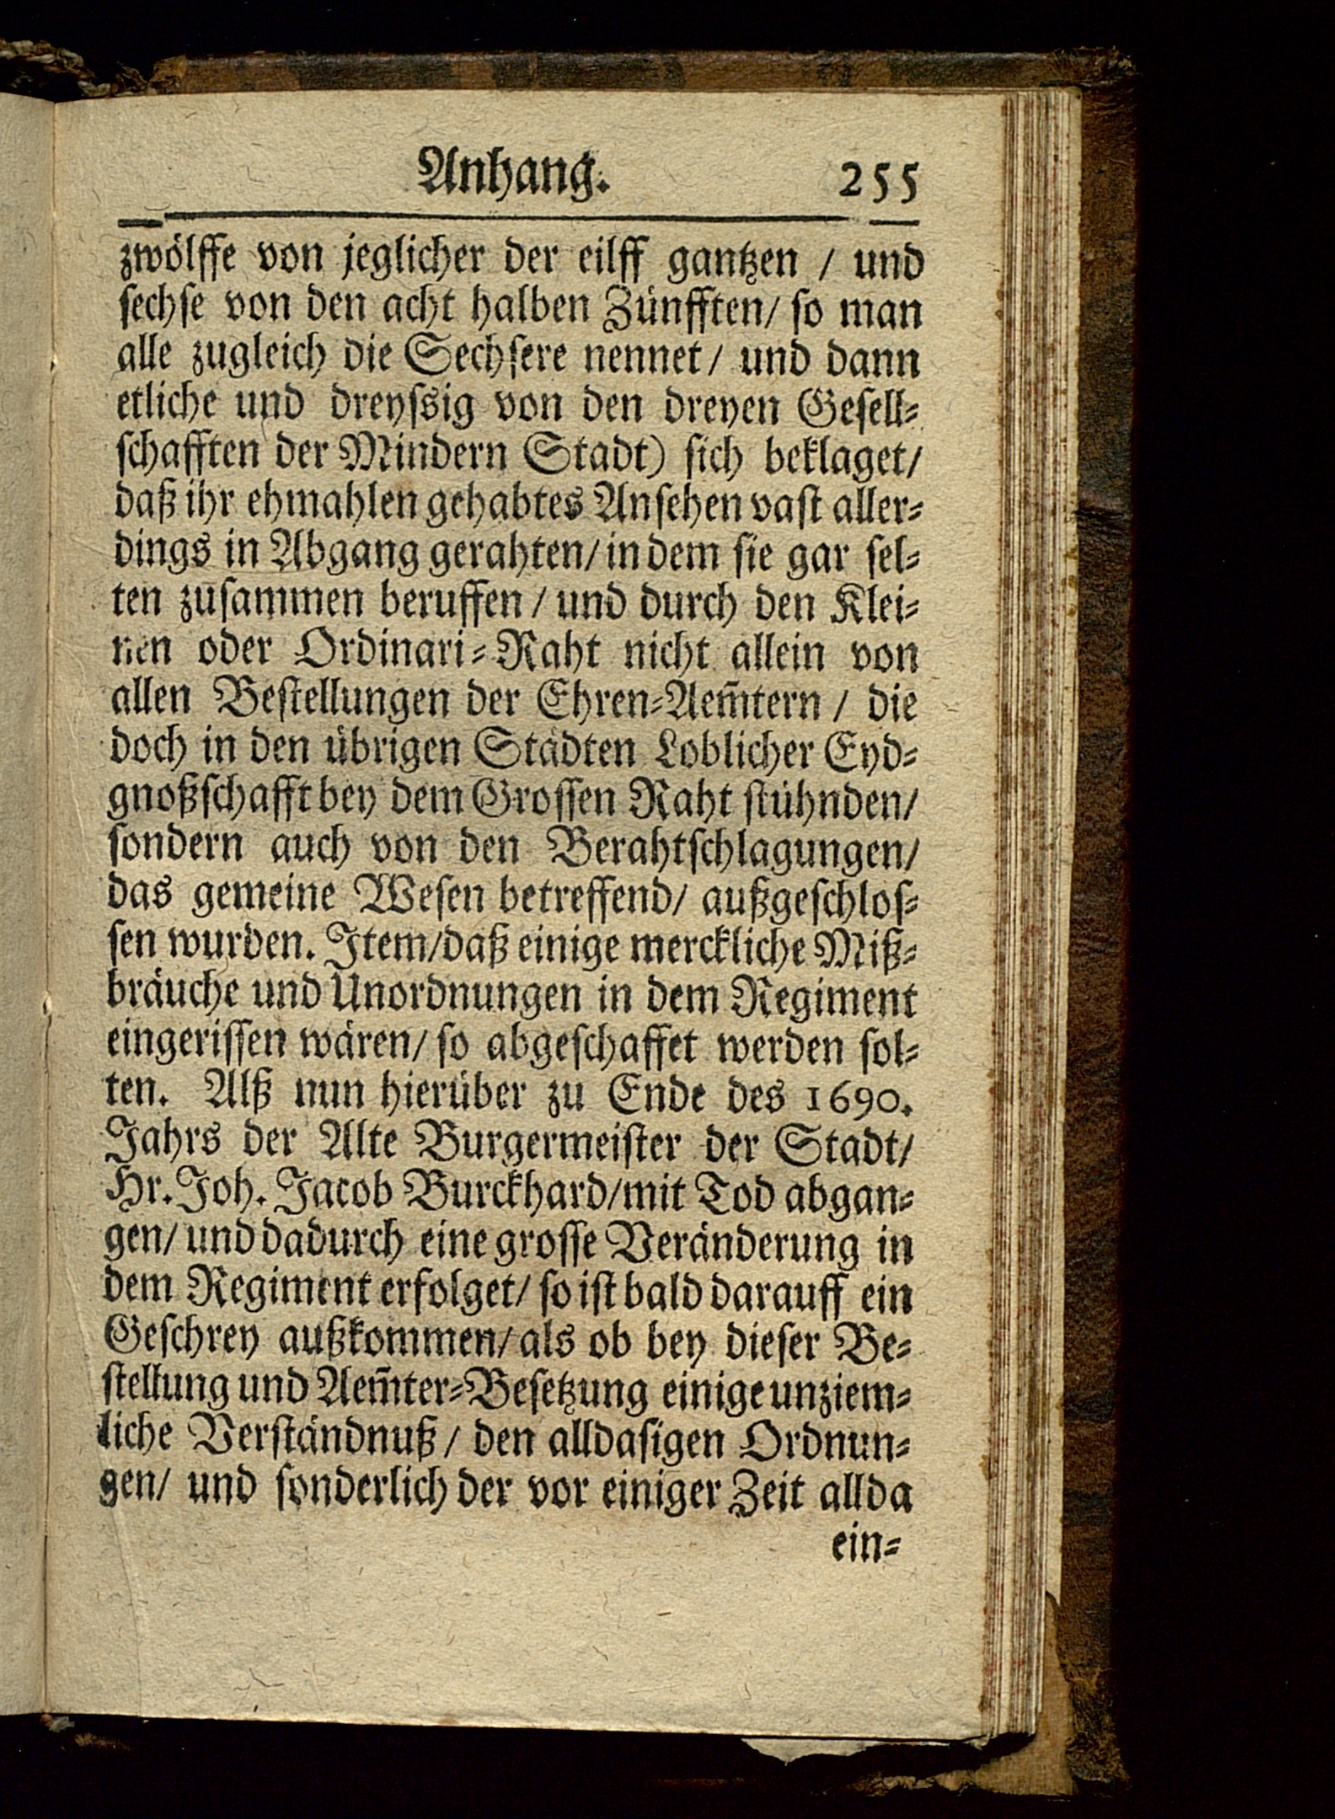 Anhang. 255
zwölffe von jeglicher der eilff gantzen / und
sechse von den acht halben Zünfften/ so man
alle zugleich die Sechsere nennet/ und dann
etliche und dreyssig von den dreyen Gesell-
schafften der Mindern Stadt) sich beklaget/
daß ihr ehmahlen gehabtes Ansehen vast aller-
dings in Abgang gerahten/ in dem sie gar sel-
ten zusammen beruffen / und durch den Klei-
nen oder Ordinari-Raht nicht allein von
allen Bestellungen der Ehren-Aem̃tern / die
doch in den übrigen Städten Loblicher Eyd-
gnoßschafft bey dem Grossen Raht stühnden/
sondern auch von den Berahtschlagungen/
das gemeine Wesen betreffend/ außgeschlos-
sen wurden. Item/daß einige merckliche Miß-
bräuche und Unordnungen in dem Regiment
eingerissen wären/ so abgeschaffet werden sol-
ten. Alß nun hierüber zu Ende des 1690.
Jahrs der Alte Burgermeister der Stadt/
Hr. Joh. Jacob Burckhard/mit Tod abgan-
gen/ und dadurch eine grosse Veränderung in
dem Regiment erfolget/ so ist bald darauff ein
Geschrey außkommen/ als ob bey dieser Be-
stellung und Aem̃ter-Besetzung einige unziem-
liche Verständnuß / den alldasigen Ordnun-
gen/ und sonderlich der vor einiger Zeit allda
ein-